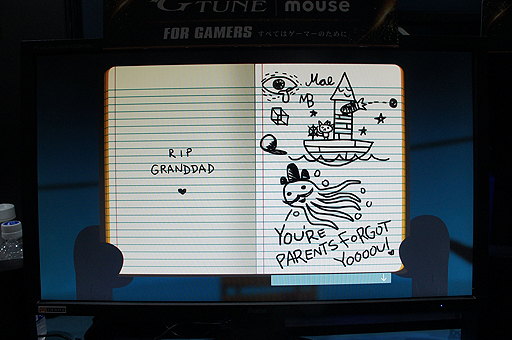 G TUNE | mouse
FOR GAMERS すべてはゲーマーのために
RIP
GRANDDAD
Mae
MB
YOU'RE
PARENTS FORGOT
YOOOOU!